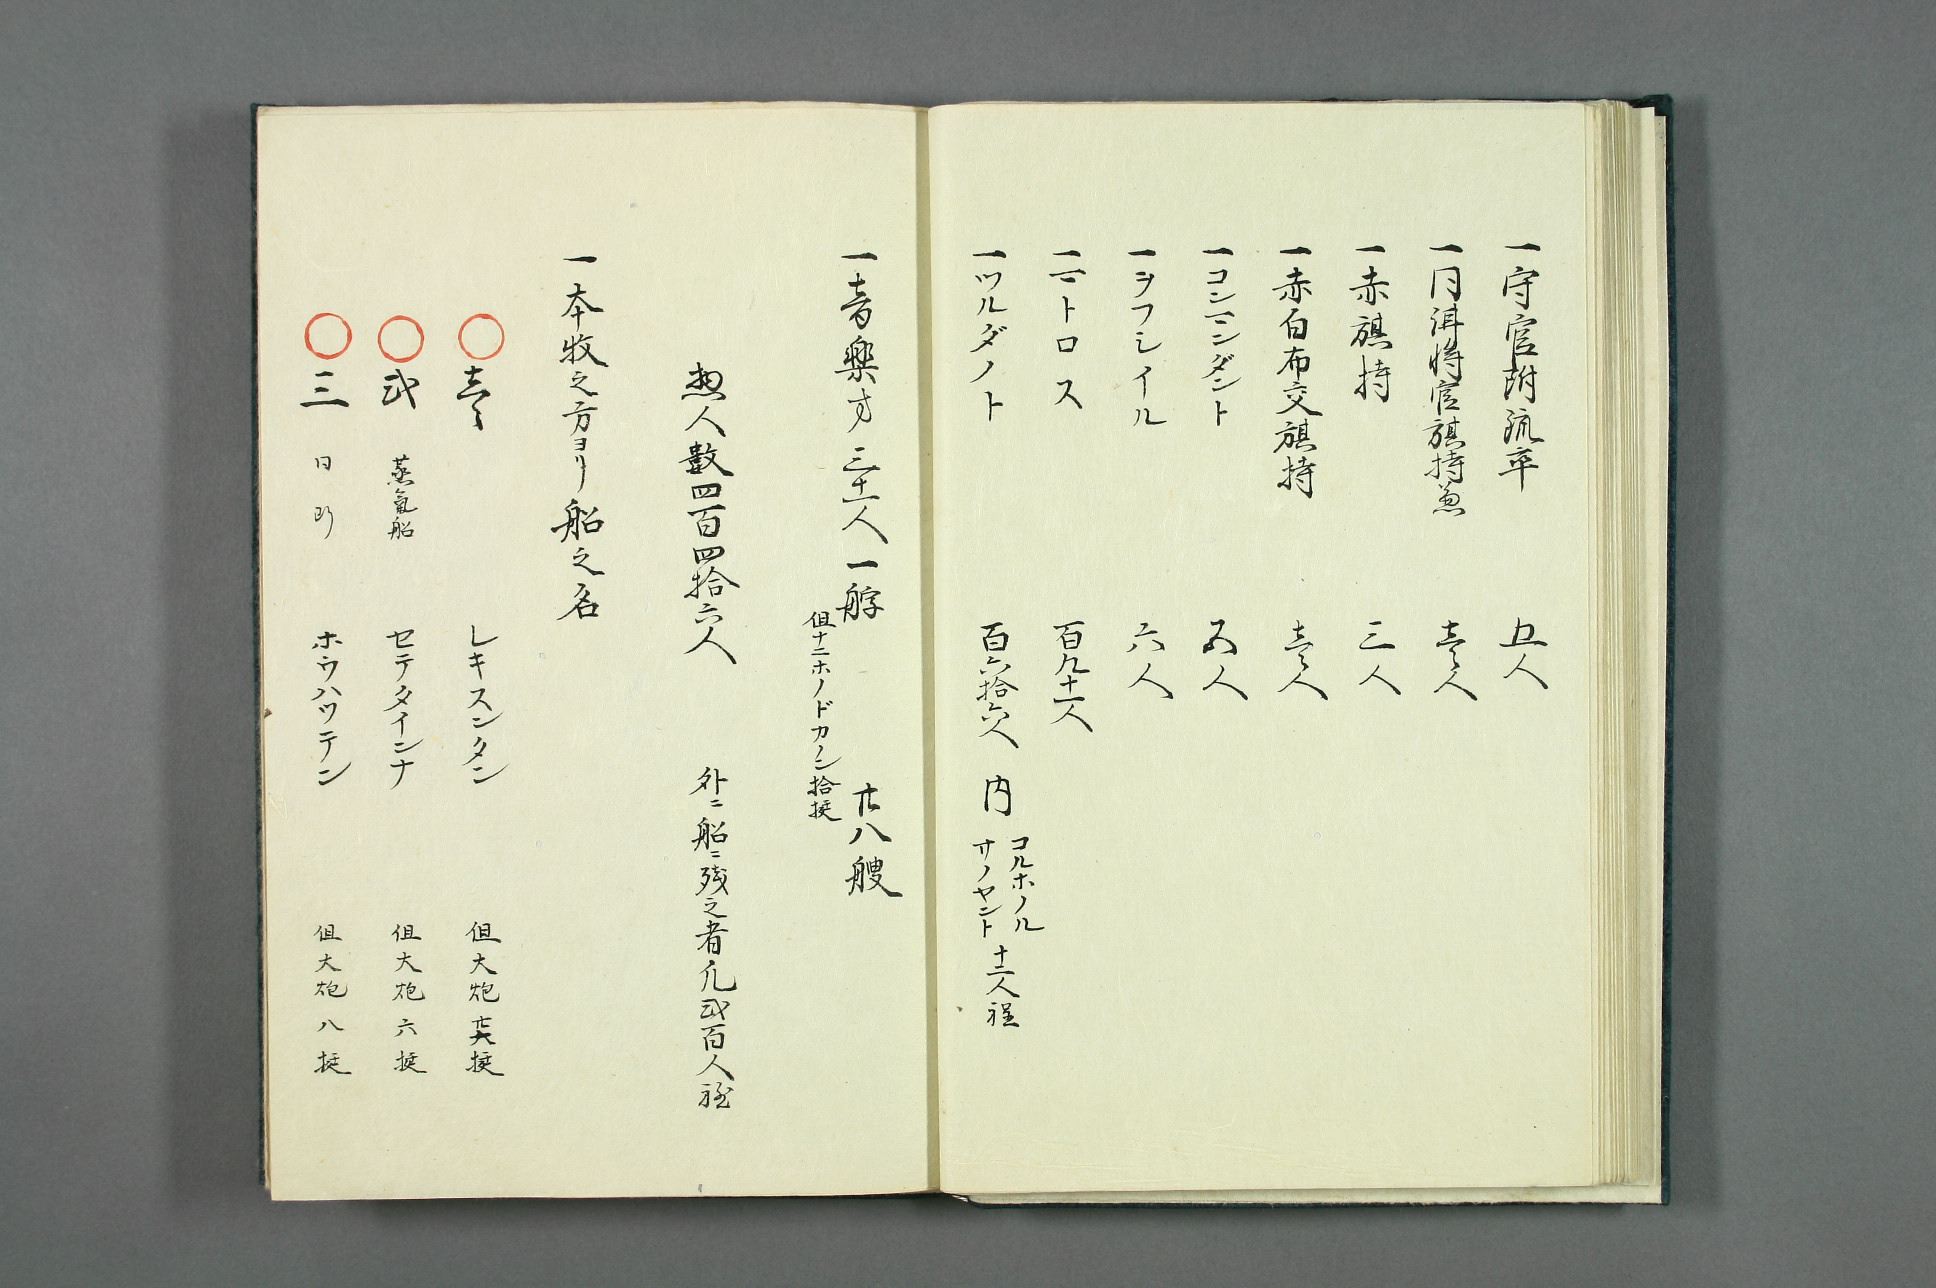 一守官附疏卒 五人
一同洱将官旗持兼 壱人
一赤旗持 三人
一赤白布交旗持 壱人
一コンマンダント 五人
一ヲフシイル 六人
一マトロス 百九十一人
一ソルダノト 百六拾六人 内 コルホノル
サノヤント 十二人程
一音楽方 三十一人 一艀 廿八艘
但十二ホノドカノン拾挺
惣人数四百四拾六人 外ニ船ニ残之者凡弐百人程
一本牧之方ヨリ船之名
○壱 レキスンタン 但大炮廿六挺
○弐 蒸氣船 セテタインナ 但大炮六挺
○三 同断 ホウハツテン 但大炮八挺